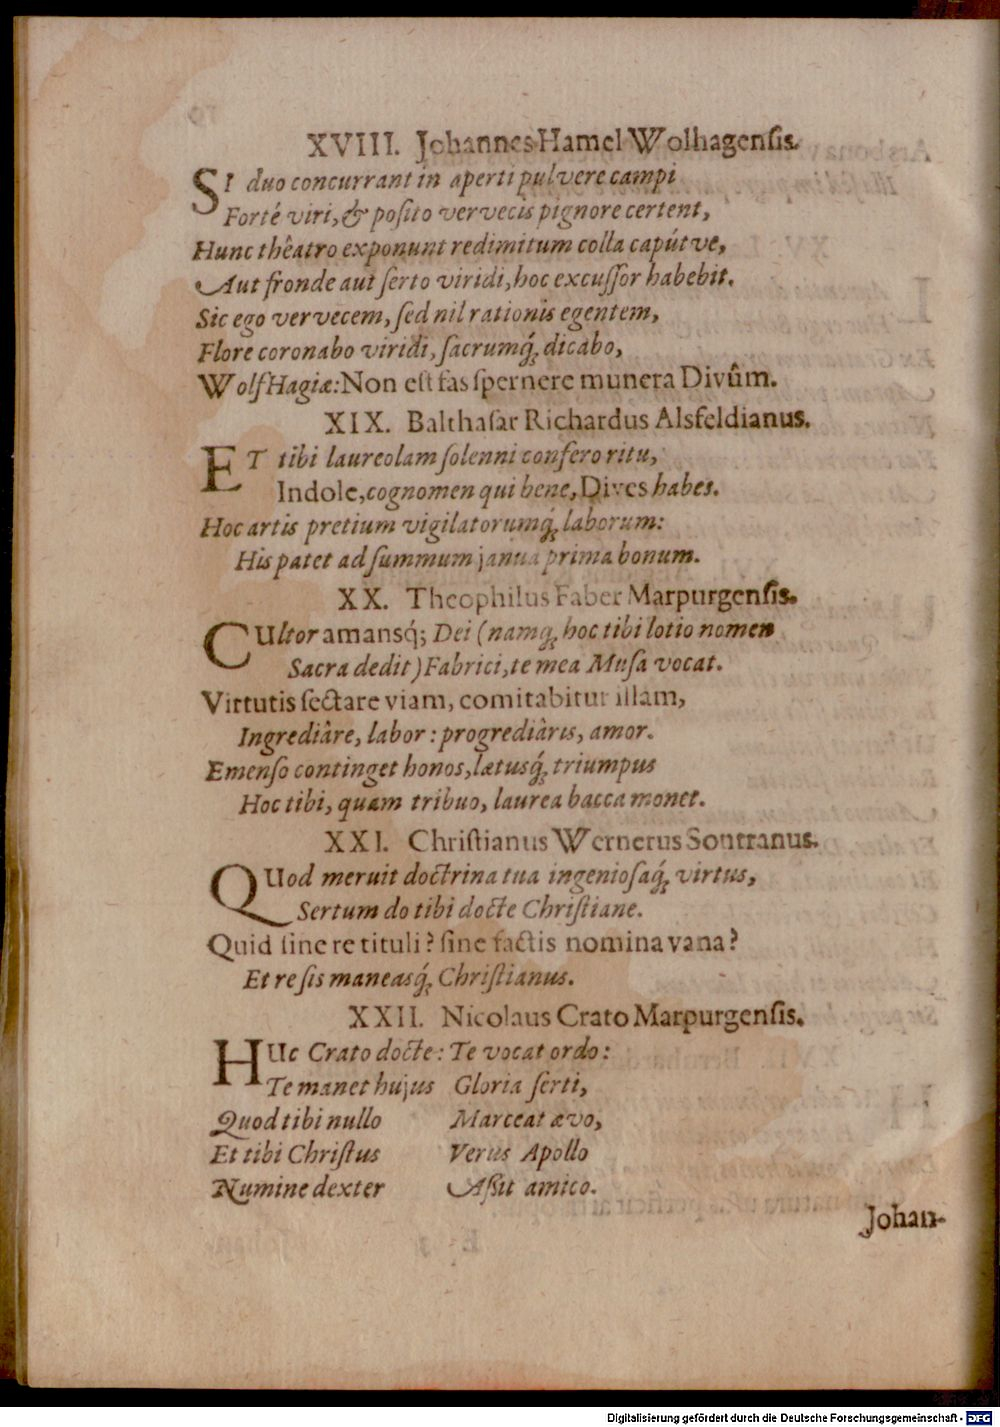 XVIII. Johannes Hamel Wolhagenſis.
SI duo concurrant in aperti pulvere campi
Forté viri, & poſito vervecis pignore certent,
Hunc thêatro exponunt redimitum colla capútve,
Aut fronde aut ſerto viridi, hoc excuſſor habebit.
Sic ego vervecem, ſed nil rationis egentem,
Flore coronabo viridi, ſacrumq́; dicabo,
WolfHagiæ: Non eſt fas ſpernere munera Divûm.
XIX. Balthaſar Richardus Alsfeldianus.
ET tibi laureolam ſolenni confero ritu,
Indole, cognomen qui bene, Dives habes.
Hoc artis pretium vigilatorumq́; laborum:
His patet ad ſummum janua prima bonum.
XX. Theophilus Faber Marpurgenſis.
CUltor amansq́; Dei (namq; hoc tibi lotio nomen
Sacra dedit) Fabrici, te mea Muſa vocat.
Virtutis ſectare viam, comitabitur illam,
Ingrediâre, labor: progrediâris, amor.
Emenſo continget honos, lætusq́; triumpus
Hoc tibi, quam tribuo, laurea bacca monet.
XXI. Chriſtianus Wernerus Sontranus.
QUod meruit doctrina tua ingenioſaq́; virtus,
Sertum do tibi docte Chriſtiane.
Quid ſine re tituli? ſine factis nomina vana?
Et re ſis maneasq́; Chriſtianus.
XXII. Nicolaus Crato Marpurgenſis.
HUc Crato docte: Te vocat ordo:
Te manet hujus Gloria ſerti,
Quod tibi nullo Marceat ævo,
Et tibi Chriſtus Verus Apollo
Numine dexter Aßit amico.
Johan-
Digitalisierung gefördert durch die Deutsche Forschungsgemeinschaft - DFG